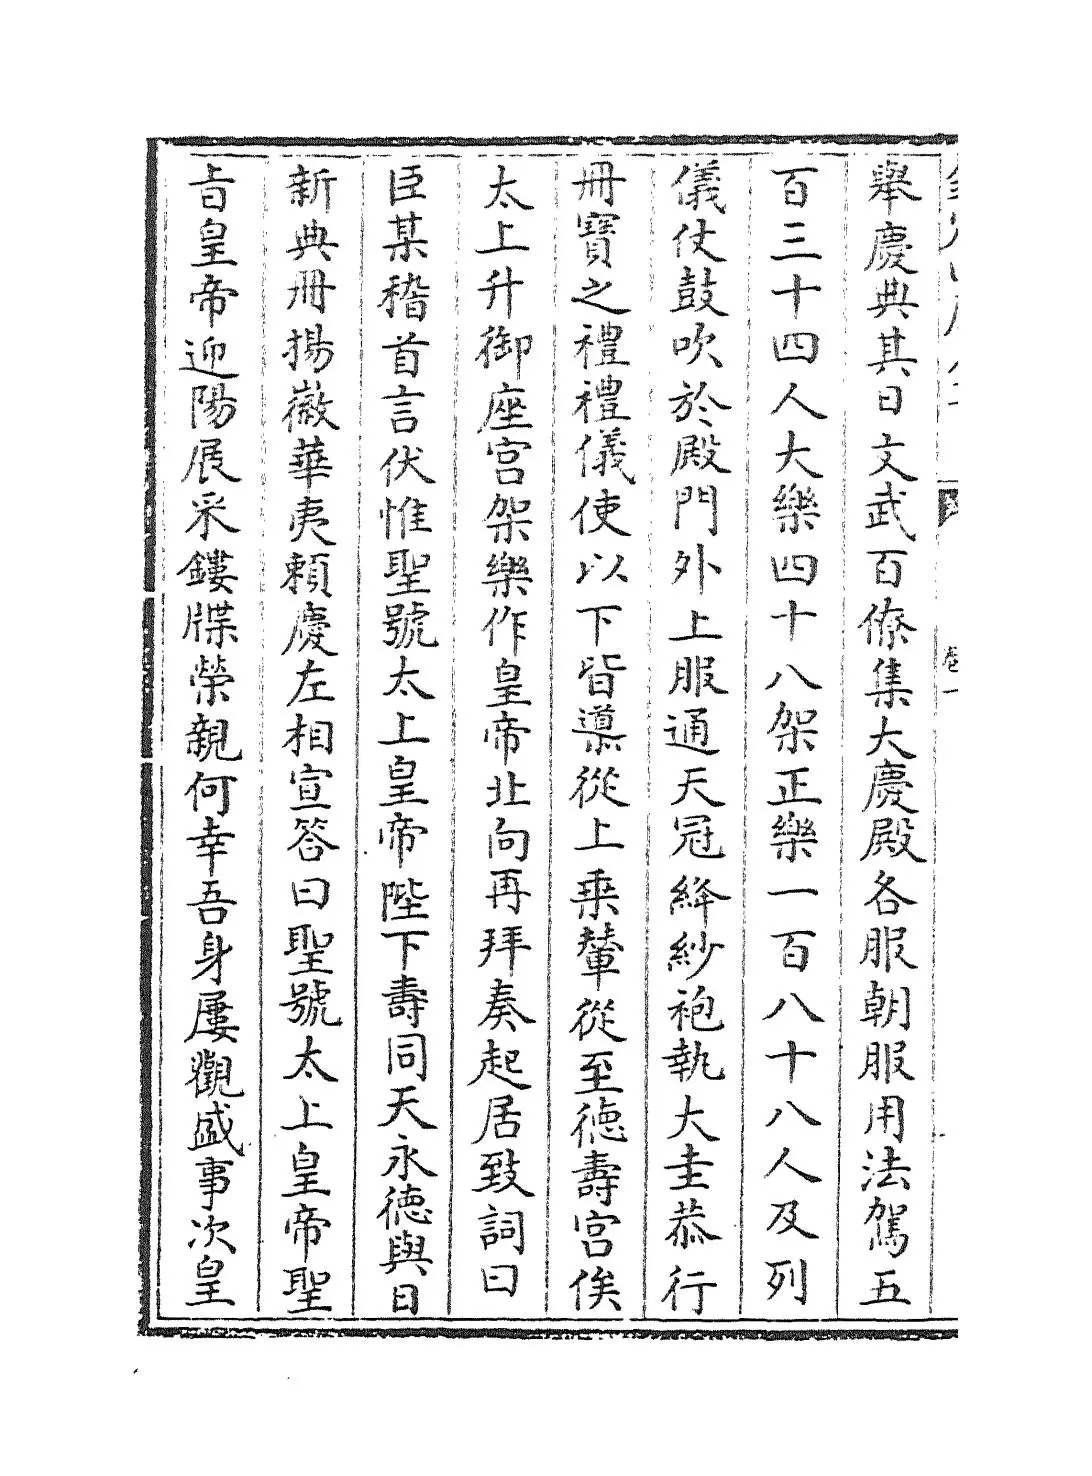 舉慶典其日文武百僚集大慶殿各服朝服用法駕五
百三十四人大樂四十八架正樂一百八十八人及列
儀仗鼓吹於殿門外上服通天冠絳紗袍執大圭恭行
冊寶之禮禮儀使以下皆導從上乗輦從至徳壽宮俟
太上升御座宮架樂作皇帝北向再拜奏起居致詞曰
臣某稽首言伏惟聖號太上皇帝陛下壽同天永徳與日
新典冊揚徽華夷賴慶左相宣答曰聖號太上皇帝聖
㫖皇帝迎陽展采鏤牒榮親何幸吾身屢觀盛事次皇